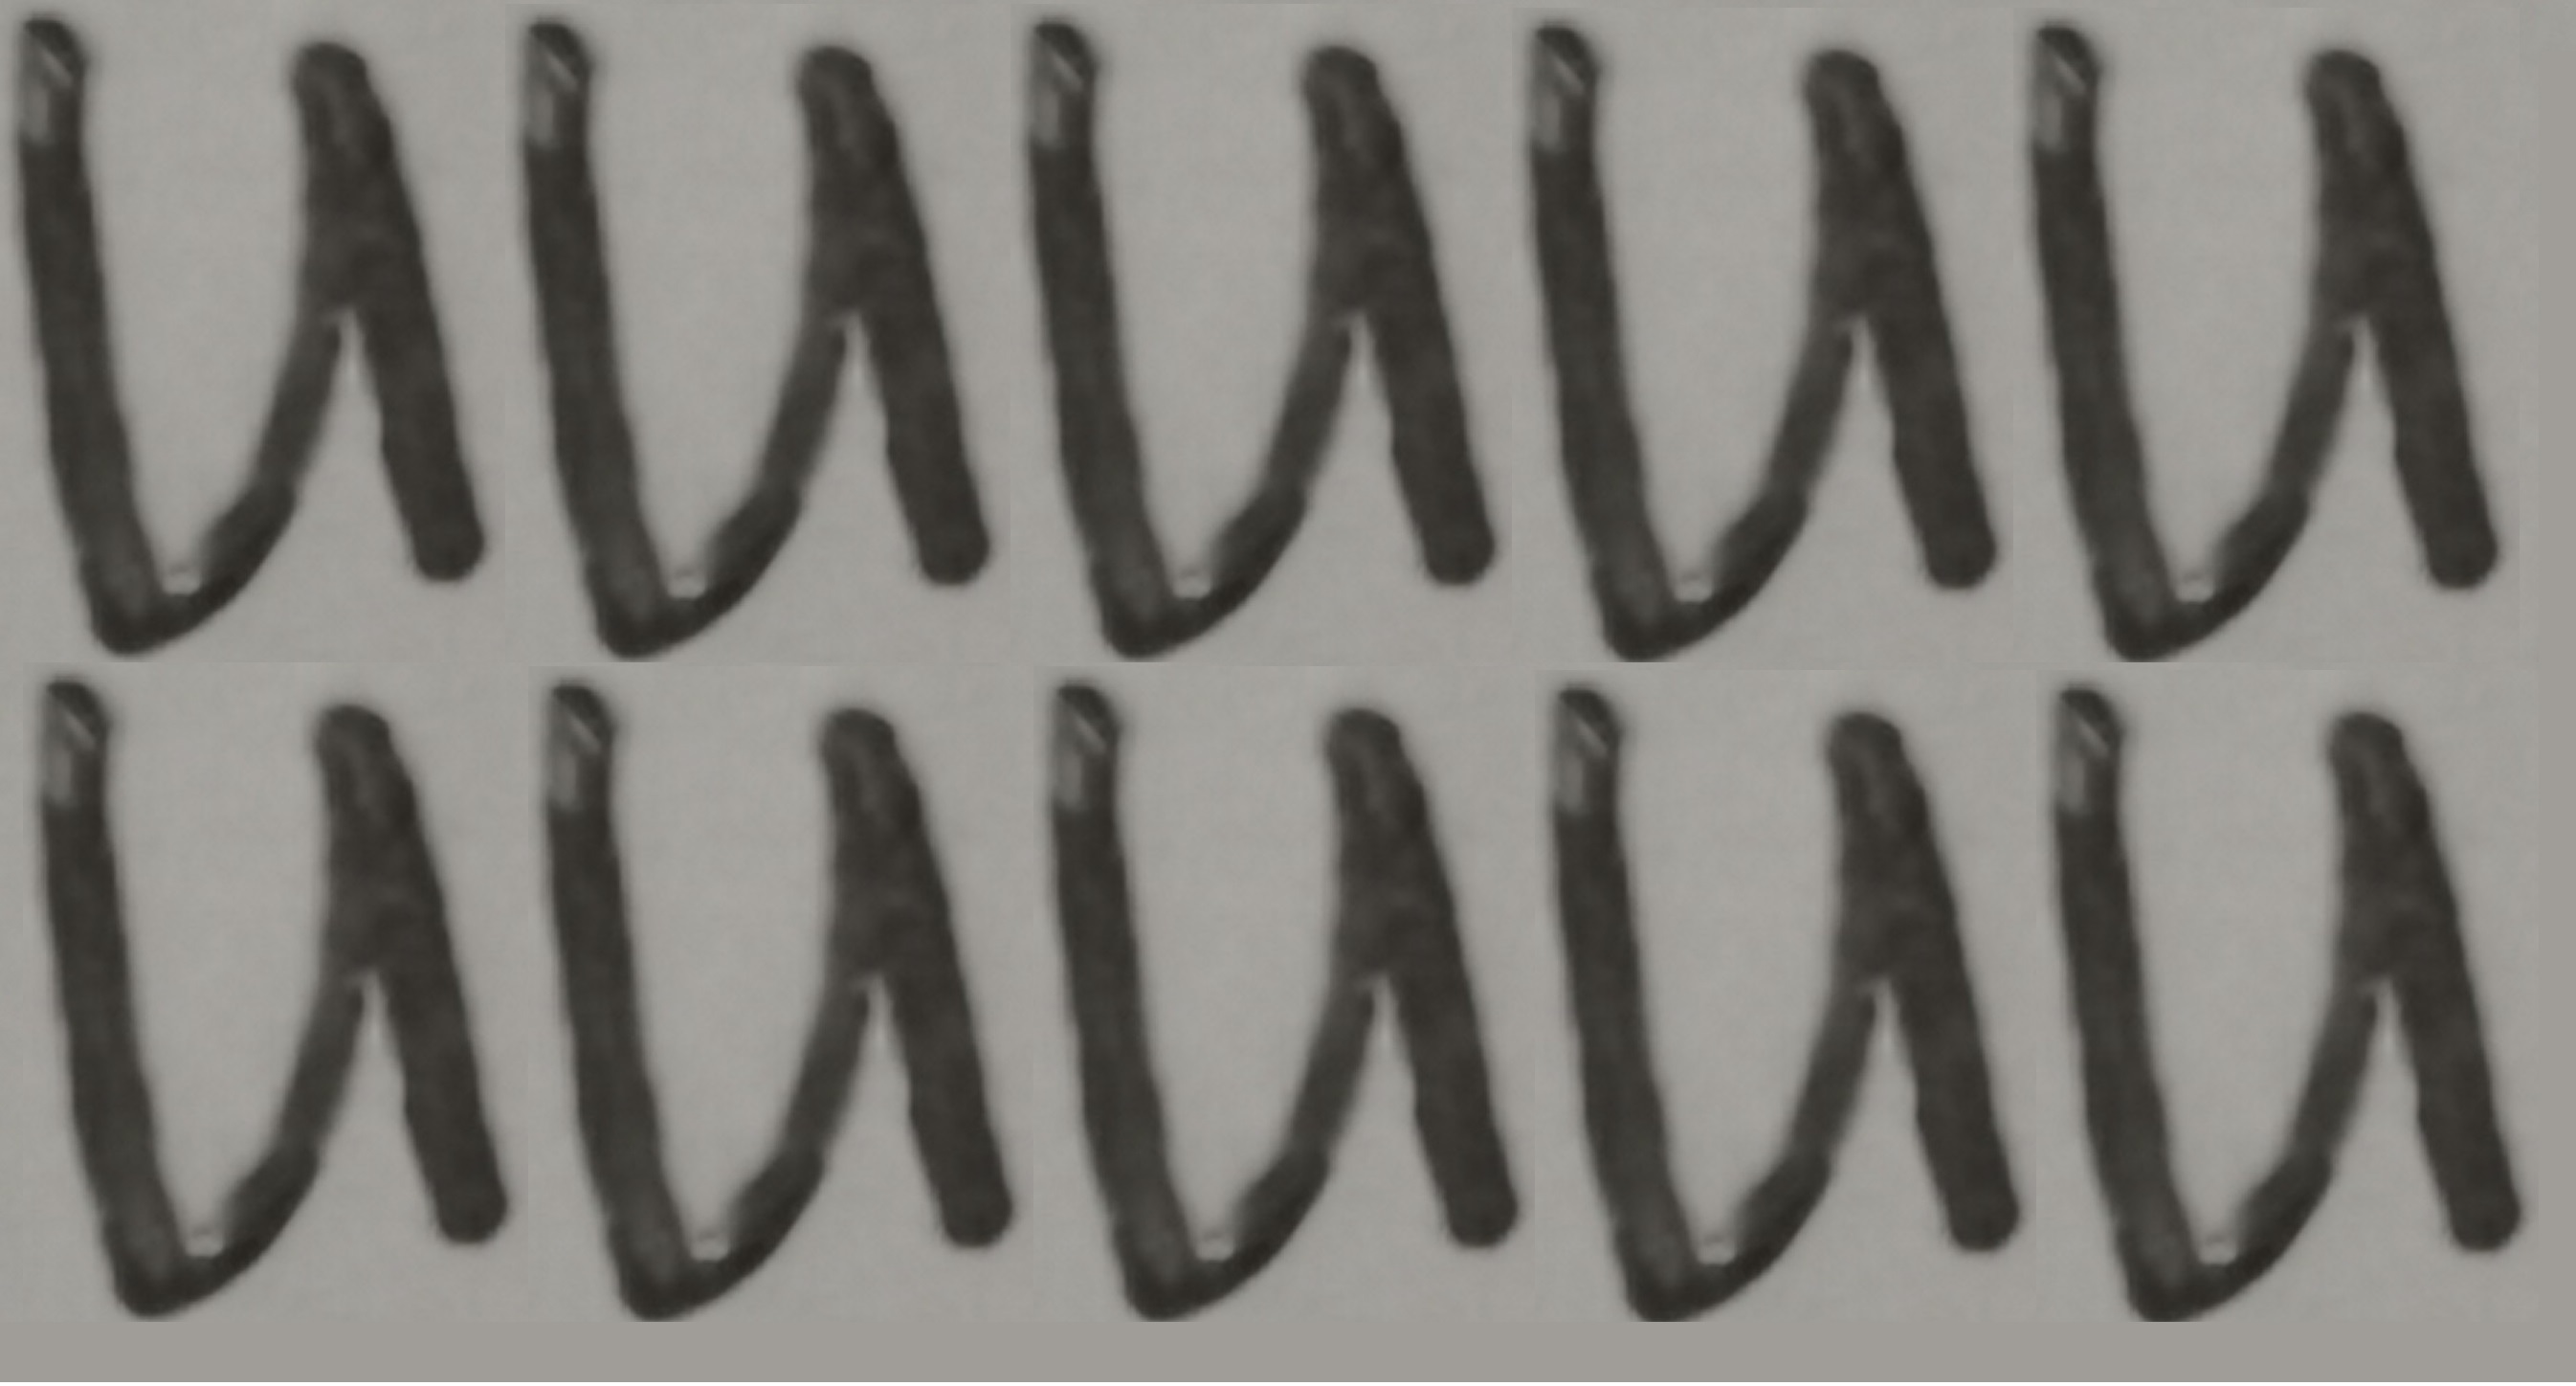 uuuuu
uuuuu